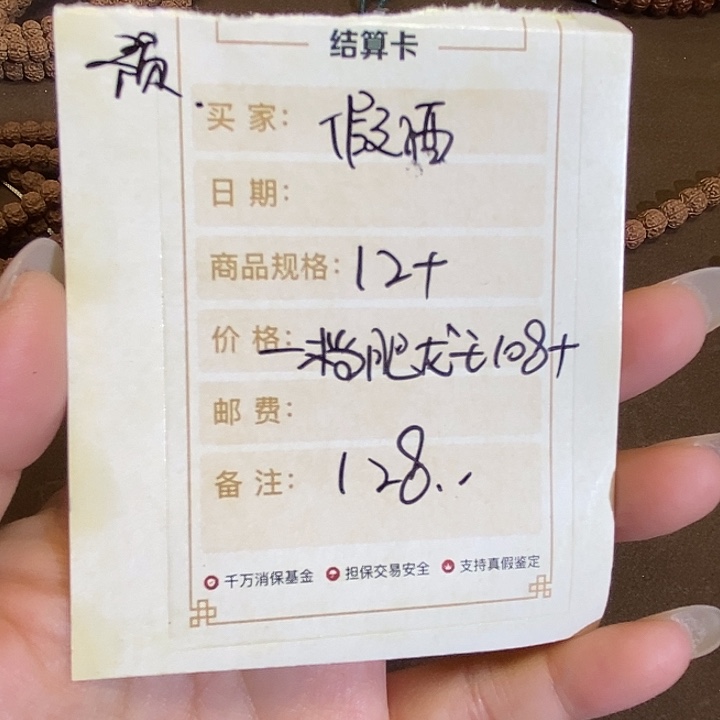 结算卡
预
买 家: 假晒
日 期:
商品规格: 12+
价 格: 一档肥龙 108+
邮 费:
备 注: 128..
千万消保基金 担保交易安全 支持真假鉴定